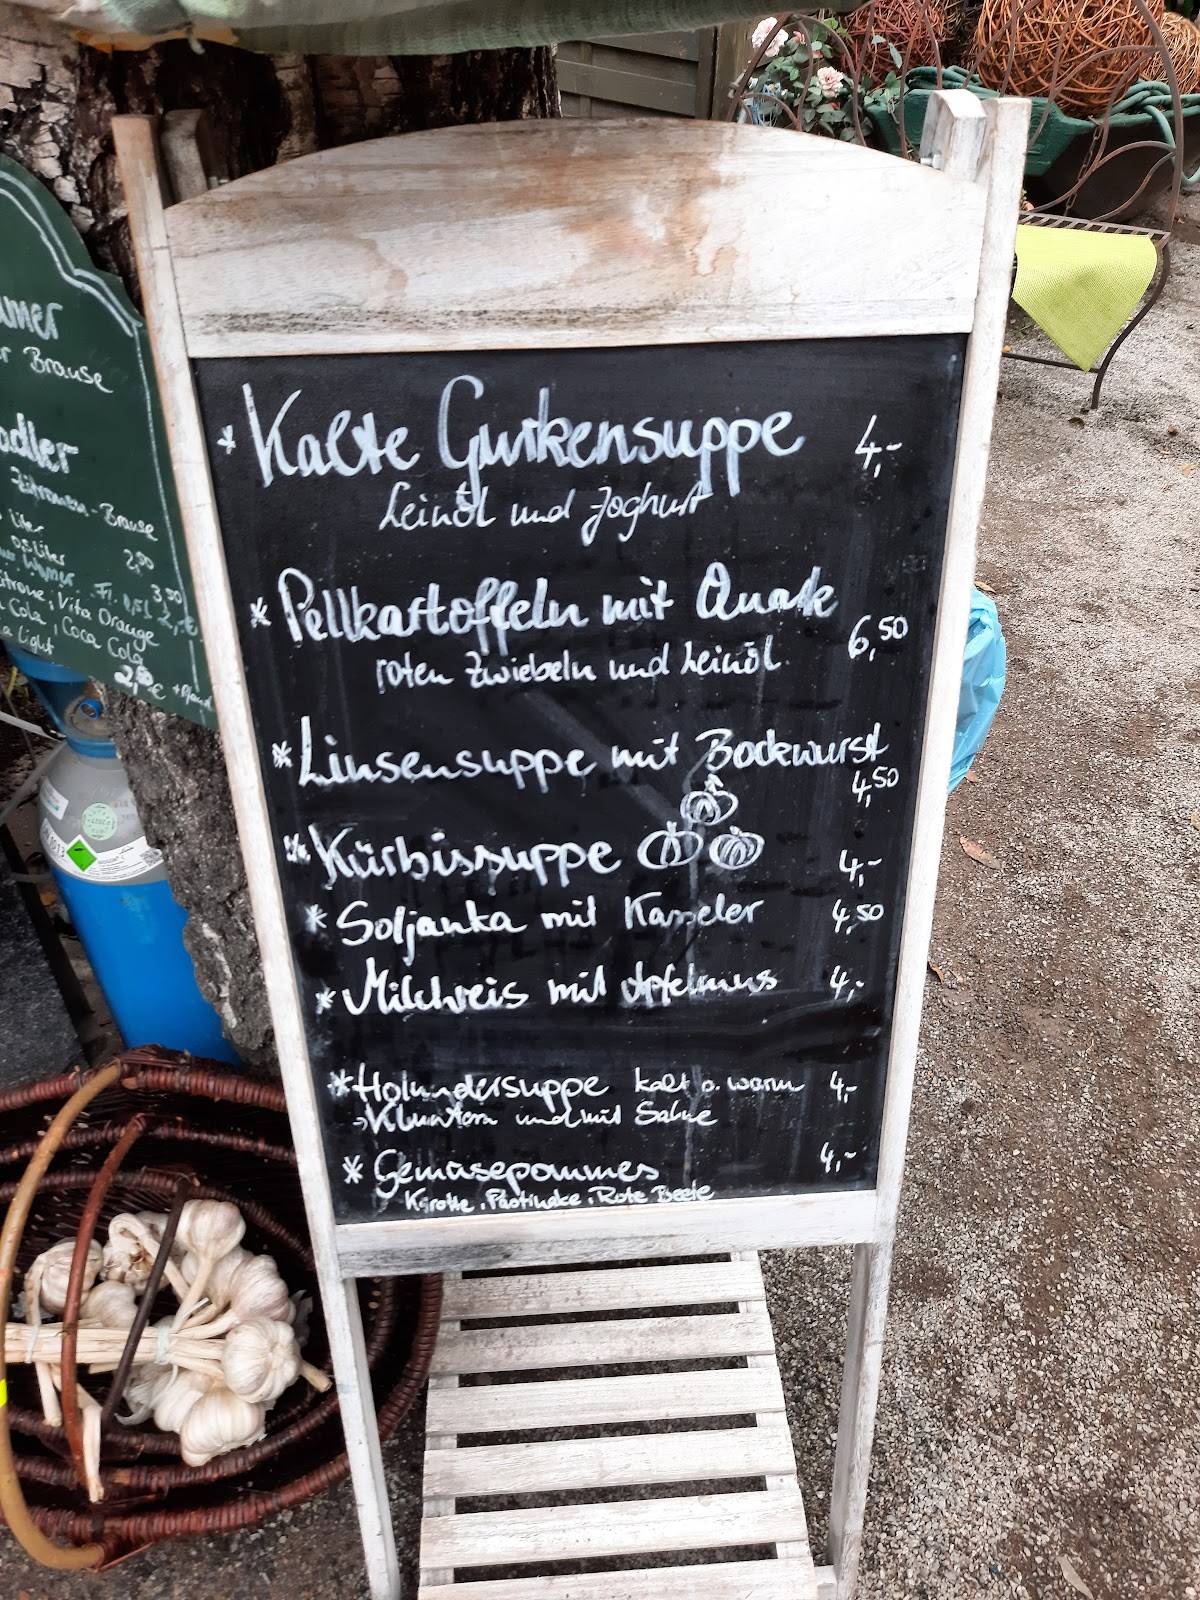 * Kalte Gurkensuppe 4,-
Leinöl und Joghurt
* Pellkartoffeln mit Quark
6,50
roten Zwiebeln und Leinöl.
* Linsensuppe mit Bockwurst
4,50
* Kürbissuppe 4,-
* Soljanka mit Kasseler 4,50
* Milchreis mit Apfelmus 4,-
* Holundersuppe kalt o. warm 4,-
und mit Sahne
* Gemüsepommes 4,-
Karotte, Pastinake, Rote Beete
Brause
Zitronen-Brause
Liter
0,5 Liter 2,50
3,50
Fl. 0,5l 2,-€
Vita Orange
Cola, Coca Cola
Light